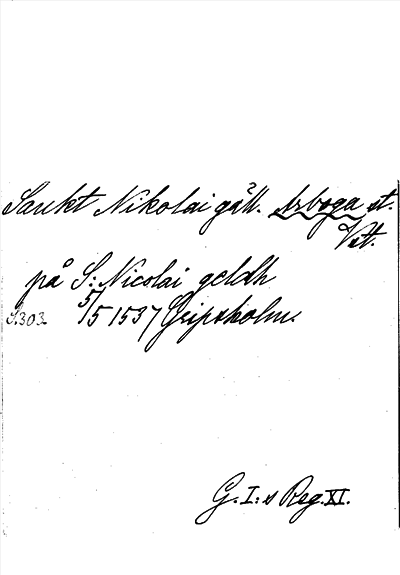 Sankt Nikolai gåll. Arboga st.
Vst.
på S: Nicolai geldh
S.303. 5/5 1537 Gripsholm.
G. I:s Reg. XI.